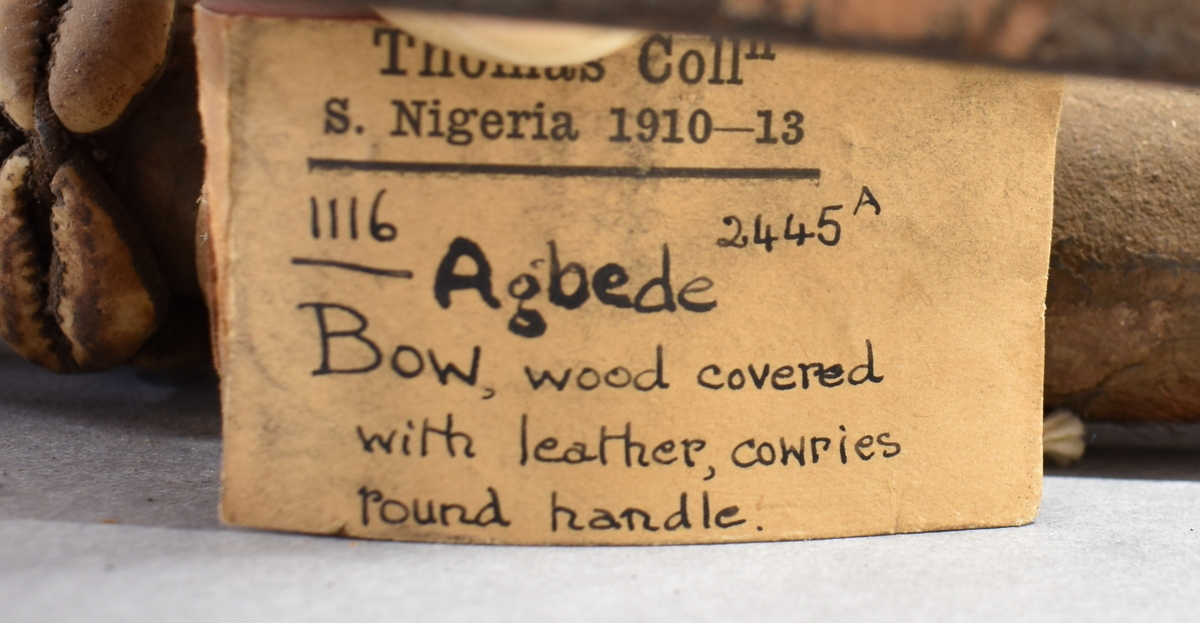 Thomas Collⁿ
S. Nigeria 1910—13
1116 2445ᴬ
Agbede
Bow, wood covered
with leather, cowries
round handle.